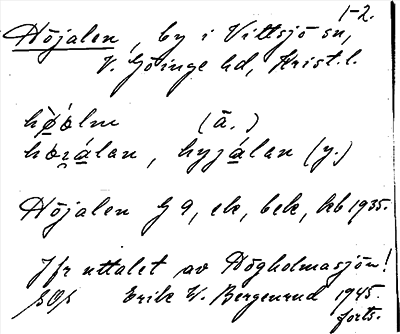 1-2.
Höjalen, by i Vittsjö sn,
V. Göinge hd, Krist. l.
hø̀ólm (ä.)
hᴔɪálan, hyjálan (y.)
Höjalen G 9, ek, bek, kb 1935.
Jfr uttalet av Högholmasjön!
SOS Erik W. Bergenrud 1945.
forts.